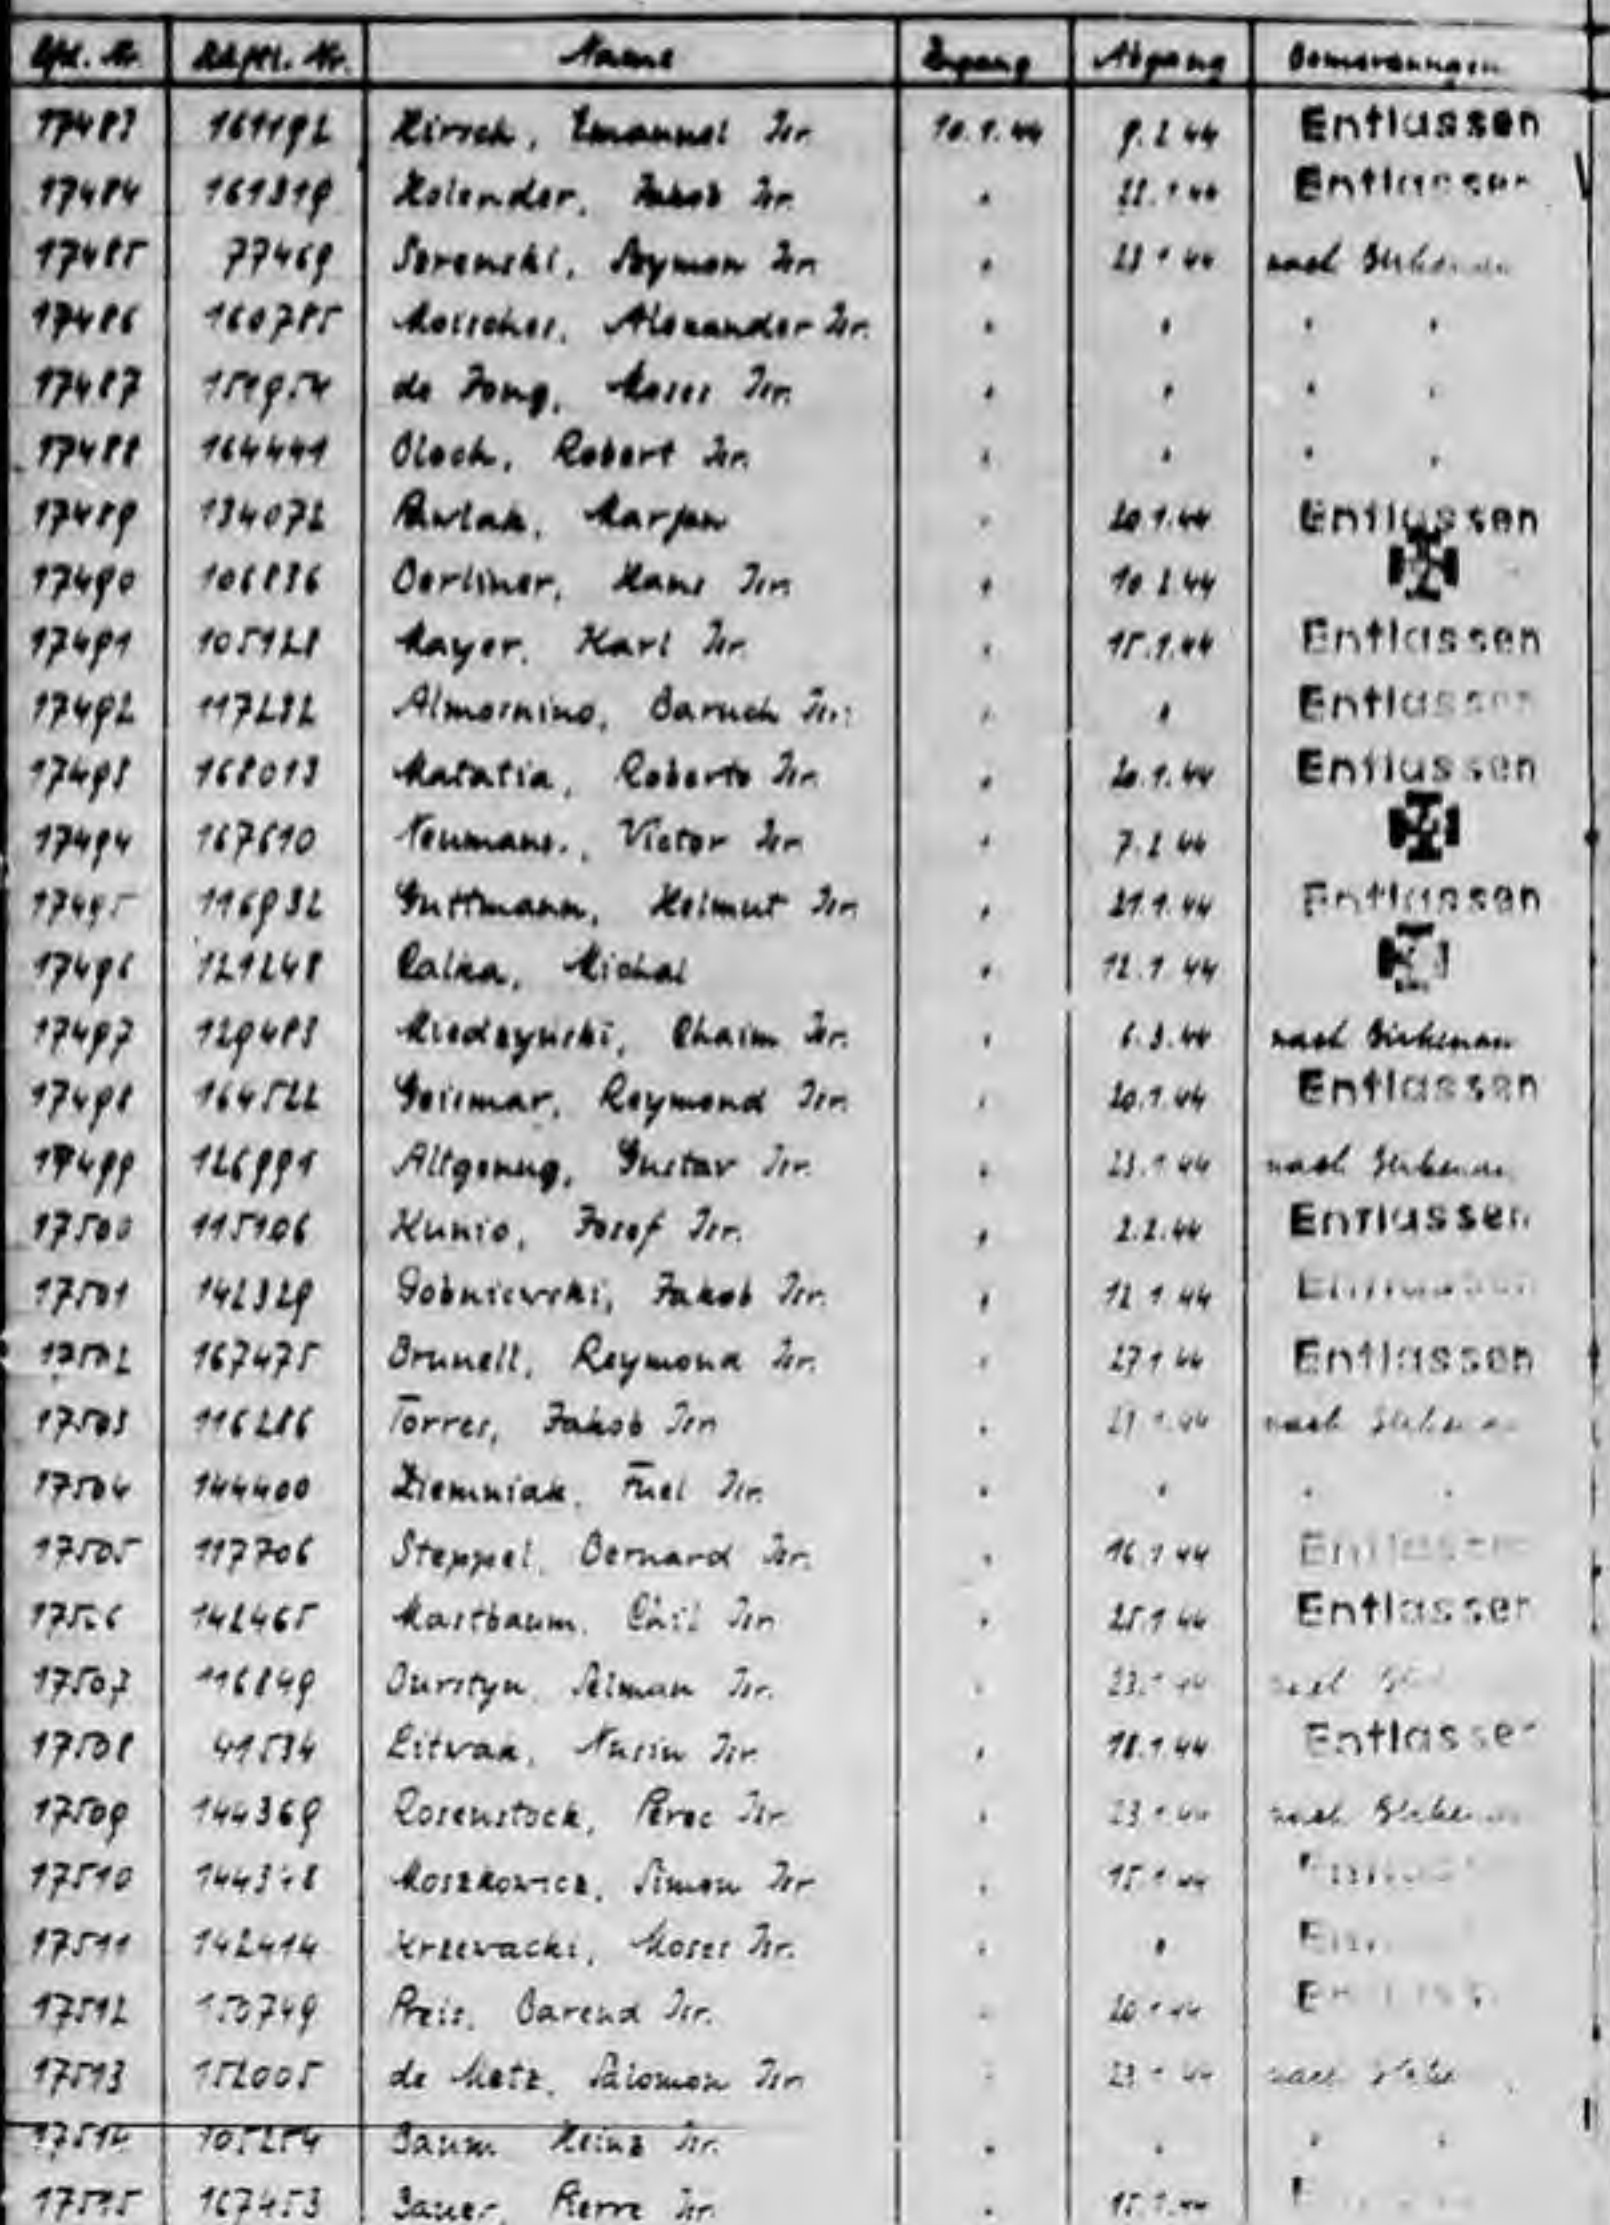 Lfd. Nr. Häftl. Nr. Name Zugang Abgang Bemerkungen
17483 161192 Hirsch, Emanuel Isr. 10.1.44 9.2.44 Entlassen
17484 161319 Holender, Jakob Isr. " 22.1.44 Entlassen
17485 77469 Serenski, Szymon Isr. " 23.1.44 nach Birkenau
17486 160785 Moisches, Alexander Isr. " " " "
17487 151954 de Jong, Moses Isr. " " " "
17488 164441 Bloch, Robert Isr. " " " "
17489 134072 Pawlak, Marjan " 20.1.44 Entlassen
17490 106836 Berliner, Hans Isr. " 10.2.44
17491 105128 Mayer, Karl Isr. " 15.1.44 Entlassen
17492 117282 Almosnino, Baruch Isr. " " Entlassen
17493 168013 Matatia, Roberto Isr. " 20.1.44 Entlassen
17494 167610 Neumann, Victor Isr. " 7.2.44
17495 116932 Guttmann, Helmut Isr. " 21.1.44 Entlassen
17496 121248 Calka, Michal " 12.1.44
17497 129483 Miedzynski, Chaim Isr. " 6.3.44 nach Birkenau
17498 164522 Geismar, Reymond Isr. " 20.1.44 Entlassen
17499 126991 Altgenug, Gustav Isr. " 23.1.44 nach Birkenau
17500 115106 Kunio, Josef Isr. " 2.2.44 Entlassen
17501 142329 Gobniewski, Jakob Isr. " 12.1.44 Entlassen
17502 167475 Brunell, Reymond Isr. " 27.1.44 Entlassen
17503 116286 Torres, Jakob Isr. " 23.1.44 nach Birkenau
17504 144400 Ziemniak, Fuel Isr. " " " "
17505 117706 Steppel, Bernard Isr. " 16.1.44 Entlassen
17506 142465 Mastbaum, Chil Isr. " 25.1.44 Entlassen
17507 116849 Burstyn, Salman Isr. " 23.1.44 nach
17508 41534 Litwak, Nusin Isr. " 18.1.44 Entlassen
17509 144369 Rosenstock, Perec Isr. " 23.1.44 nach Birkenau
17510 Moszkowicz, Simon Isr. " 15.1.44
17511 142414 Krzewacki, Moses Isr. " "
17512 150749 Preis, Barend Isr. " 20.1.44
17513 152005 de Metz, Salomon Isr. " 23.1.44 nach
17514 105254 Baum Heinz Isr. " " " "
17515 167453 Bauer, Pierre Isr. " 15.1.44